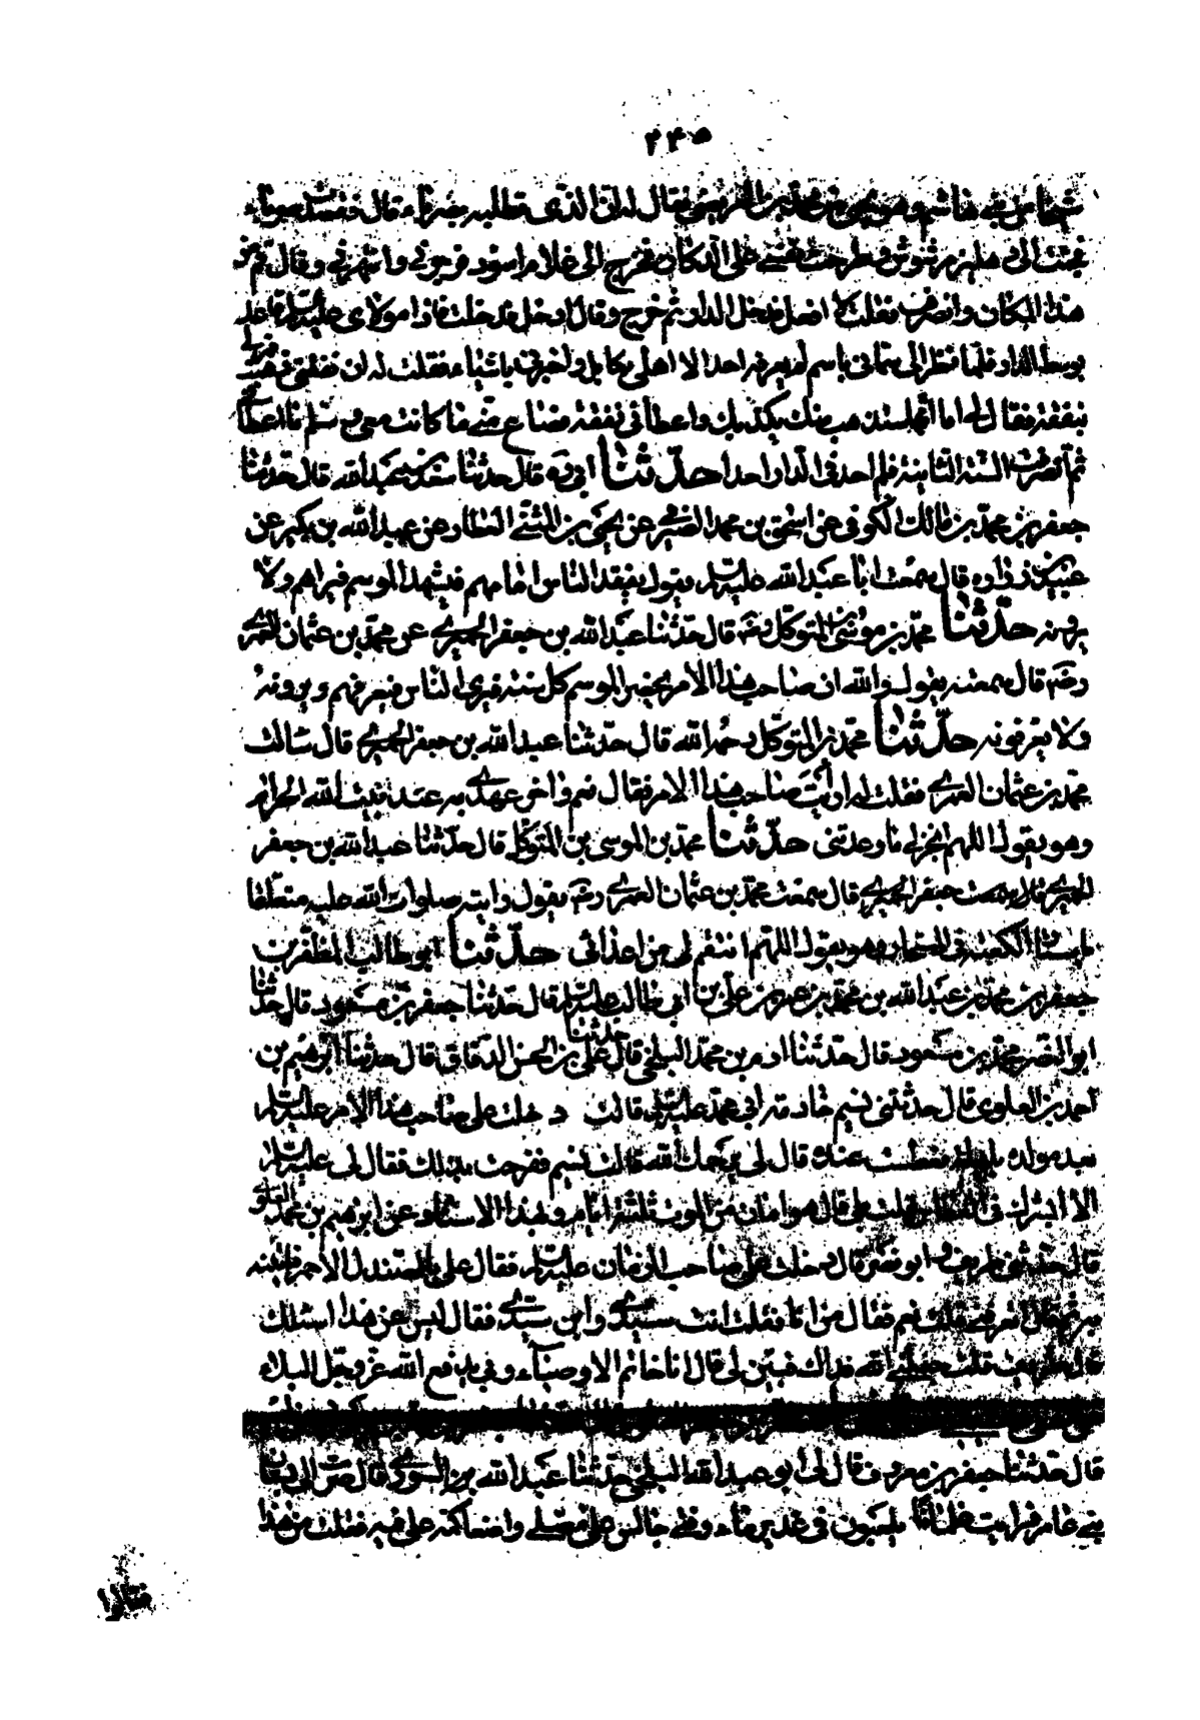 ۲۴۵
شماس بنى هاشم وهو يحيى بن محمد العريضى فقال لى ان الذى تطلبه بصرياء قال فقصدت صرياء
فجئت الى دهليز مرشوش وطرحت نفسى على الدكان فخرج الى غلام اسود فزجرنى وانتهرنى وقال قم من
هذا المكان وانصرف فقلت لا افعل فدخل الدار ثم خرج وقال ادخل فدخلت فاذا مولاى عليه السلام قاعد
بوسط الدار فلما نظر الى سمانى باسم لم يعرفه احد الا اهلى بكابل واخبرنى باشياء فقلت له ان نفقتى ذهبت فمر لى
بنفقة فقال لى اما انها ستذهب منك بكذبك واعطانى نفقة فضاع منى ما كانت معى وسلم ما اعطانى
ثم انصرفت السنة الثانية فلم اجد فى الدار احدا حدّثنا ابى ره قال حدثنا سعد بن عبد الله قال حدثنا
جعفر بن محمد بن مالك الكوفى عن اسحق بن محمد الصيرفى عن يحيى بن المثنى العطار عن عبد الله بن بكير عن
عبيد بن زرارة قال سمعت ابا عبد الله عليه السلام يقول يفقد الناس امامهم فيشهد الموسم فيراهم ولا
يرونه حدّثنا محمد بن موسى بن المتوكل رضه قال حدثنا عبد الله بن جعفر الحميرى عن محمد بن عثمان العمرى
رضه قال سمعته يقول والله ان صاحب هذا الامر يحضر الموسم كل سنة فيرى الناس فيعرفهم ويرونه
ولا يعرفونه حدّثنا محمد بن المتوكل رحمه الله قال حدثنا عبد الله بن جعفر الحميرى قال سالت
محمد بن عثمان العمرى فقلت له ارايت صاحب هذا الامر فقال نعم واخر عهدى به عند بيت الله الحرام
وهو يقول اللهم انجز لى ما وعدتنى حدّثنا محمد بن الموسى بن المتوكل قال حدثنا عبد الله بن جعفر
الحميرى قال سمعت جعفر الحميرى قال سمعت محمد بن عثمان العمرى رضه يقول رايته صلوات الله عليه متعلقا
باستار الكعبة فى المستجار وهو يقول اللهم انتقم لى من اعدائى حدّثنا ابو طالب المظفر بن
جعفر بن محمد بن عبد الله بن محمد بن عمر بن على بن ابى طالب عليه السلام قال حدثنا جعفر بن مسعود قال حدثنا
ابو النضر محمد بن مسعود قال حدثنا ادم بن محمد البلخى قال حدثنا على بن الحسن الدقاق قال حدثنا ابرهيم بن
احمد بن العلوى قال حدثتنى نسيم خادمة ابى محمد عليه السلام قالت دخلت على صاحب هذا الامر عليه السلام
بعد مولده بليلة فعطست عنده قال لى يرحمك الله قالت نسيم ففرحت بذلك فقال لى عليه السلام
الا ابشرك فى العطاس قلت بلى قال هو امان من الموت ثلثة ايام وبهذا الاسناد عن ابرهيم بن محمد العلوى
قال حدثنى طريف ابو نصر قال دخلت على صاحب الزمان عليه السلام فقال على بالصندل الاحمر فاتيته
به ثم قال اتعرفنى قلت نعم فقال من انا فقلت انت سيدى وابن سيدى فقال ليس عن هذا اسئلك
قال طريف قلت جعلنى الله فداك فبين لى قال انا خاتم الاوصياء وبى يدفع الله عز وجل البلاء
قال حدثنا جعفر بن معروف قال لى ابو عبد الله البلخى حدثنا عبد الله بن السورى قال صرت الى بستان
بنى عامر فرايت غلمانا يلعبون فى غدير ماء وفتى جالس على مصلى واضعا كمه على فيه فقلت من هذا
فقالوا